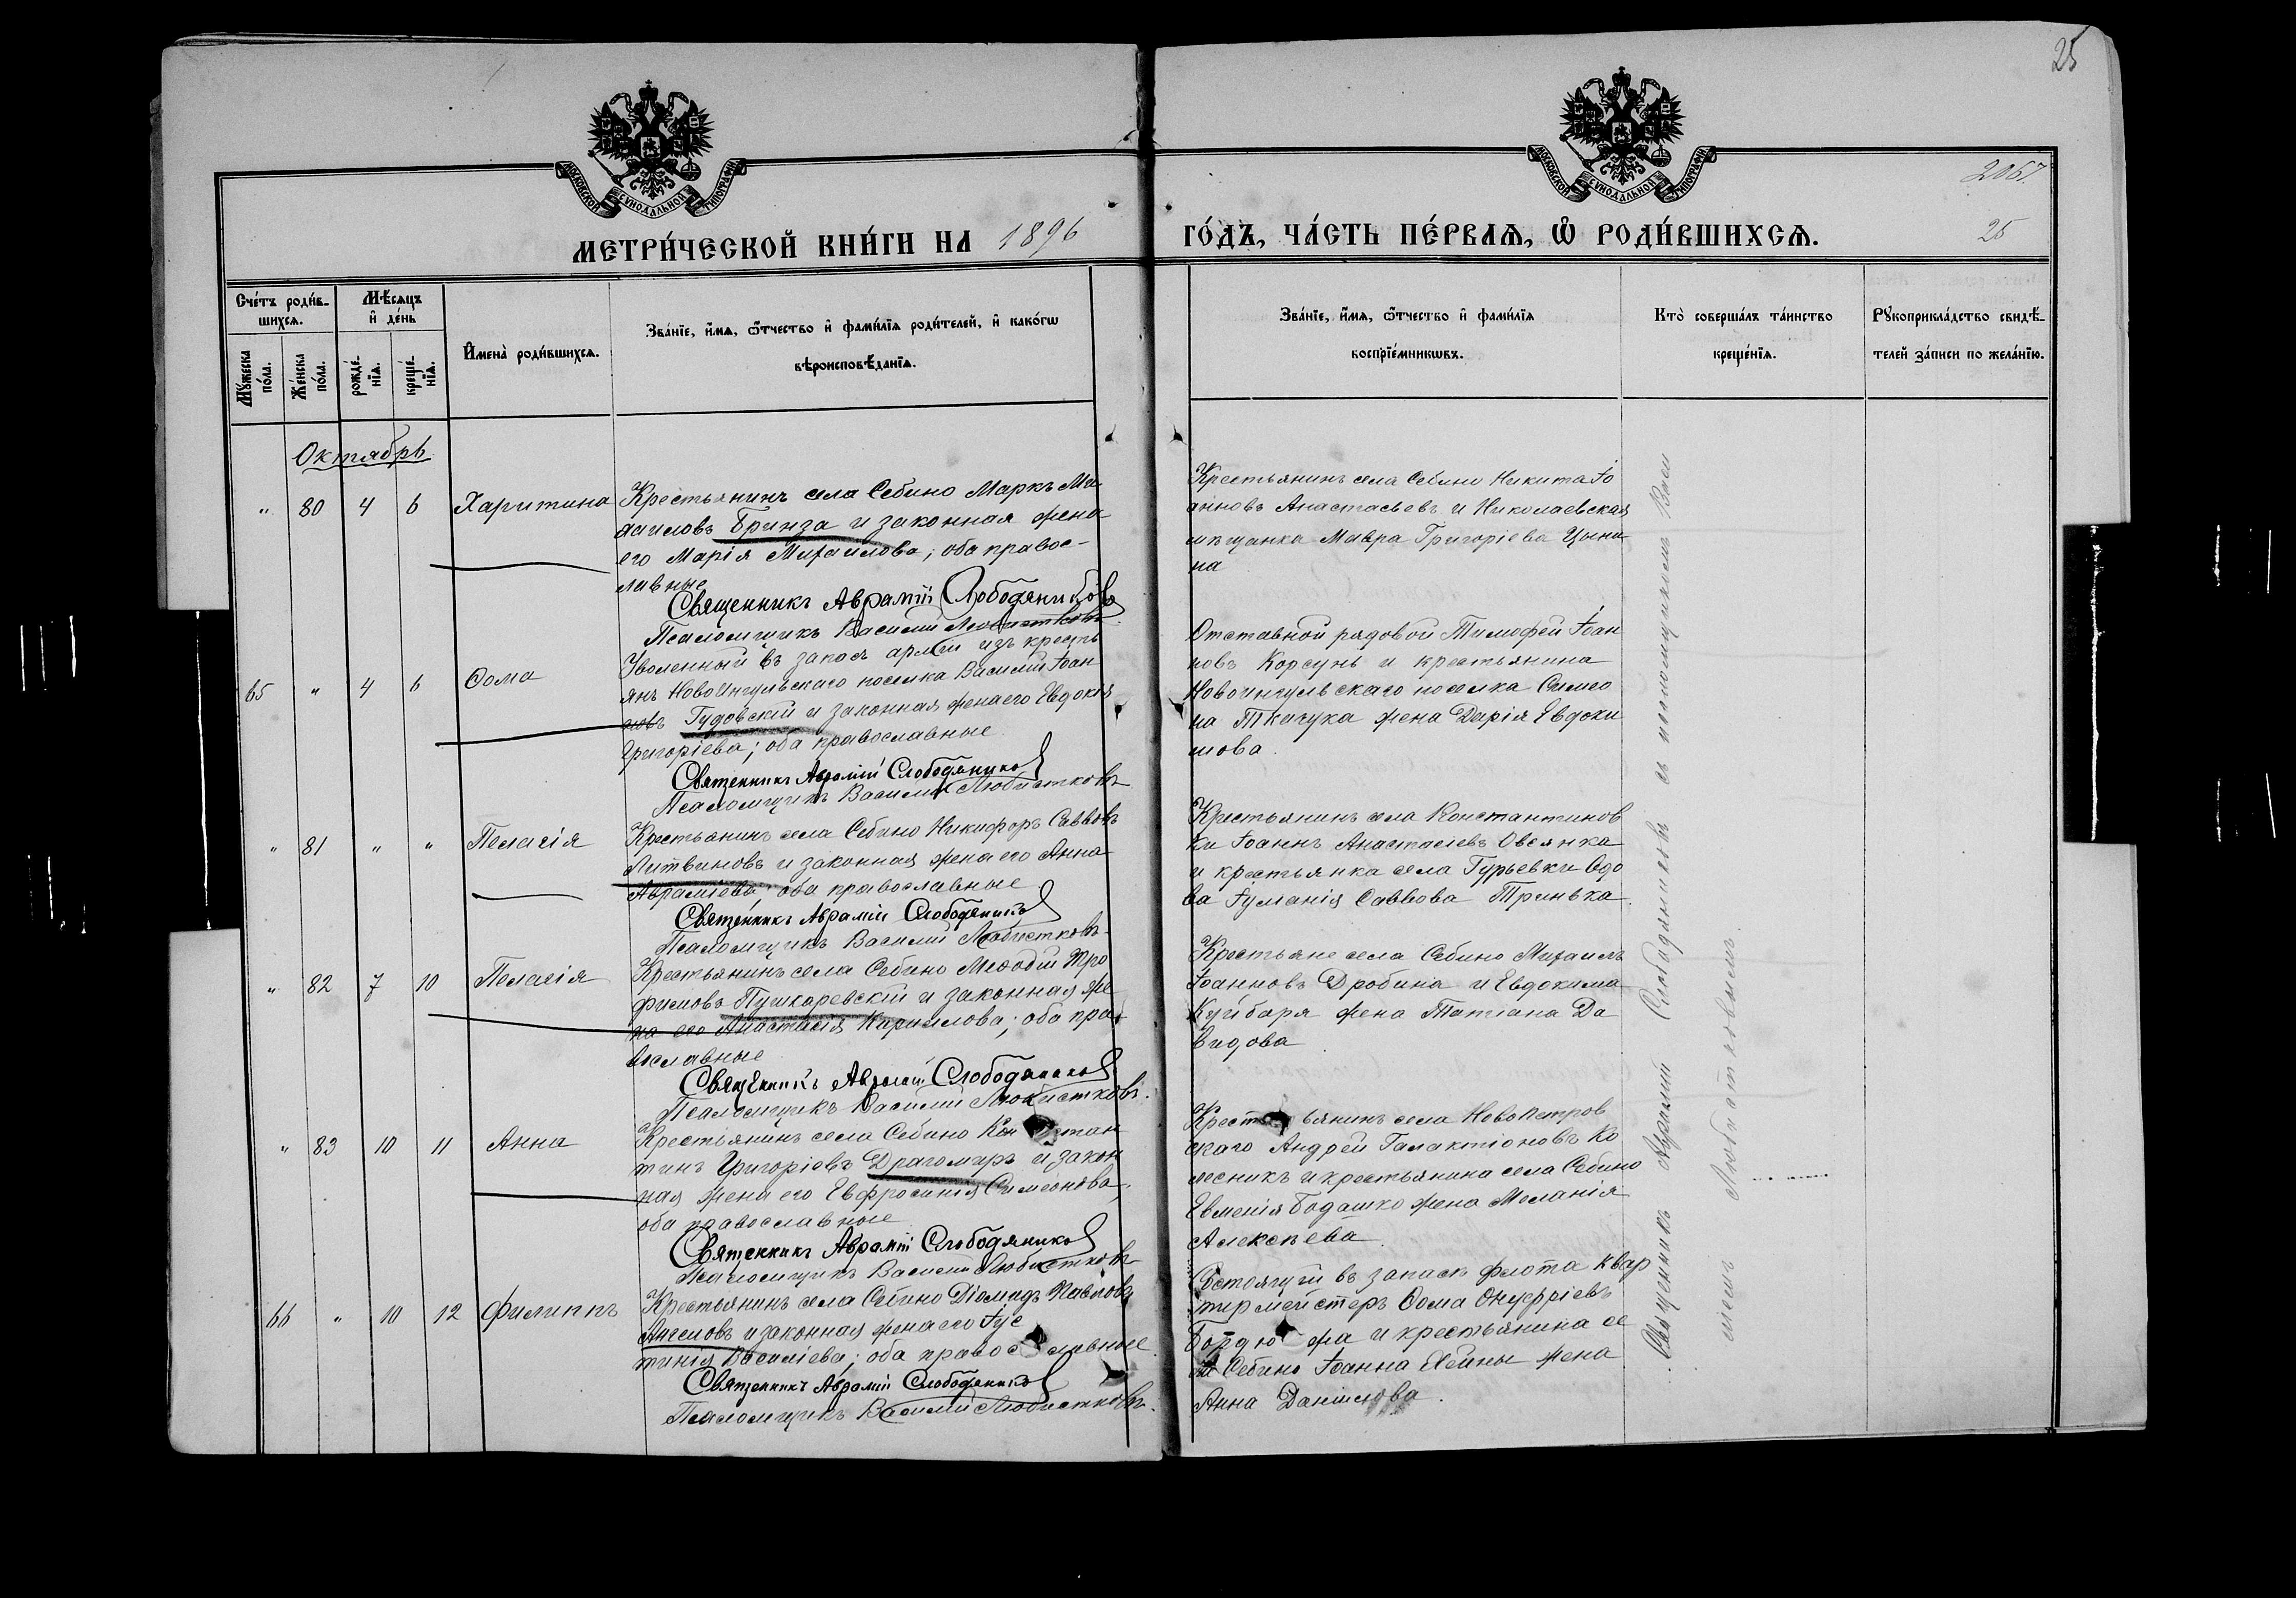 25
МОСКОВСКОЙ СѴНОДАЛЬНОЙ ТИПОГРАФІИ
МОСКОВСКОЙ СѴНОДАЛЬНОЙ ТИПОГРАФІИ
2067.
МЕТРИ́ЧЕСКОЙ КНИ́ГИ НА 1896
ГО́ДЪ, ЧА́СТЬ ПЕ́РВАѦ, Ѡ РОДИ́ВШИХСѦ.
25
Сче́тъ роди́в-
шихсѧ.
Мꙋ́жеска по́ла.
Же́нска по́ла.
Мѣ́сѧцъ и де́нь
рожде́-нїѧ.
креще́-нїѧ.
Имена̀ роди́вшихсѧ.
Зва́нїе, и́мѧ, ѻ́тчество и фами́лїѧ роди́телей, и како́гѡ
вѣроисповѣ́данїѧ.
Зва́нїе, и́мѧ, ѻ́тчество и фами́лїѧ
воспрїе́мникѡвъ.
Кто̀ соверша́лъ та́инство
креще́нїѧ.
Рꙋкоприкла́дство свидѣ́-
телей за́писи по жела́нїю.
Октябрь
" 80 4 6 Харитина
Крестьянинъ села Себино Маркъ Ма-
Бринза и законная жена
его Марія Михаилова; оба правос-
лавные
Священникъ Аврамій Слободяников
Псаломщикъ Василий Любистковъ
Крестьянинъ села Себино Никита Іо
анновъ Анастасьевъ и Николаевская
мѣщанка Мавра Григоріева Цыни
на
65 " 4 6 Ѳома
Уволенный въ запасъ арміи изъ кресть
янъ Новоингульскаго поселка Василій Іоан
новъ Гудовскій и законная жена его Евдокія
Григоріева; оба православные
Священникъ Аврамій Слободяников
Псаломщикъ Василий Любистковъ
Отставной рядовой Тимофей Іоан
новъ Корсунь и крестьянина
Новоингульскаго поселка Симео
на Ткачука жена Дарія Евдоки
мова.
" 81 " " Пелагія
Крестьянинъ села Себино Никифоръ Саввовъ
Литвиновъ и законная жена его Анна
Авраміева; оба православные
Священникъ Аврамій Слободяников
Псаломщикъ Василий Любистковъ
Крестьянинъ села Константинов
ки Іоаннъ Анастасіевъ Овсянка
и крестьянка села Гурьевки вдо
ва Іуліанія Саввова Тринька.
" 82 7 10 Пелагія
Крестьянинъ села Себино Меѳодій Тро
фимовъ Пушкаревскій и законная же
на его Анастасія Кириллова; оба пра
вославные
Священникъ Аврамій Слободяников
Псаломщикъ Василий Любистковъ.
Крестьяне села Себино Михаилъ
Іоанновъ Дробина и Евдокима
Куйбаря жена Татіана Да
видова
" 83 10 11 Анна
Крестьянинъ села Себино Константан
тинъ Григоріевъ Драгомиръ и закон
ная жена его Евфросинія Симеонова,
оба православные
Священникъ Аврамій Слободяников
Псаломщикъ Василий Любистковъ
Крестьянинъ села Новопетров
скаго Андрей Галактіоновъ Ко
лесникъ и крестьянина села Себино
Евменія Бодашко жена Меланія
Алексѣева.
66 " 10 12 Филиппъ
Крестьянинъ села Себино Діомидъ Павловъ
Ангеловъ и законная жена его Іус
тинія Василіева; оба православные.
Священникъ Аврамій Слободяников
Псаломщикъ Василий Любистковъ.
Состоящій въ запасѣ флота квар
тирмейстеръ Ѳома Онуфріевъ
Бордюжа и крестьянина се
ла Себино Іоанна жена
Анна Даніилова.
Священникъ Аврамий Слободяниковъ съ псаломщикомъ Васи
лиемъ Любистковымъ